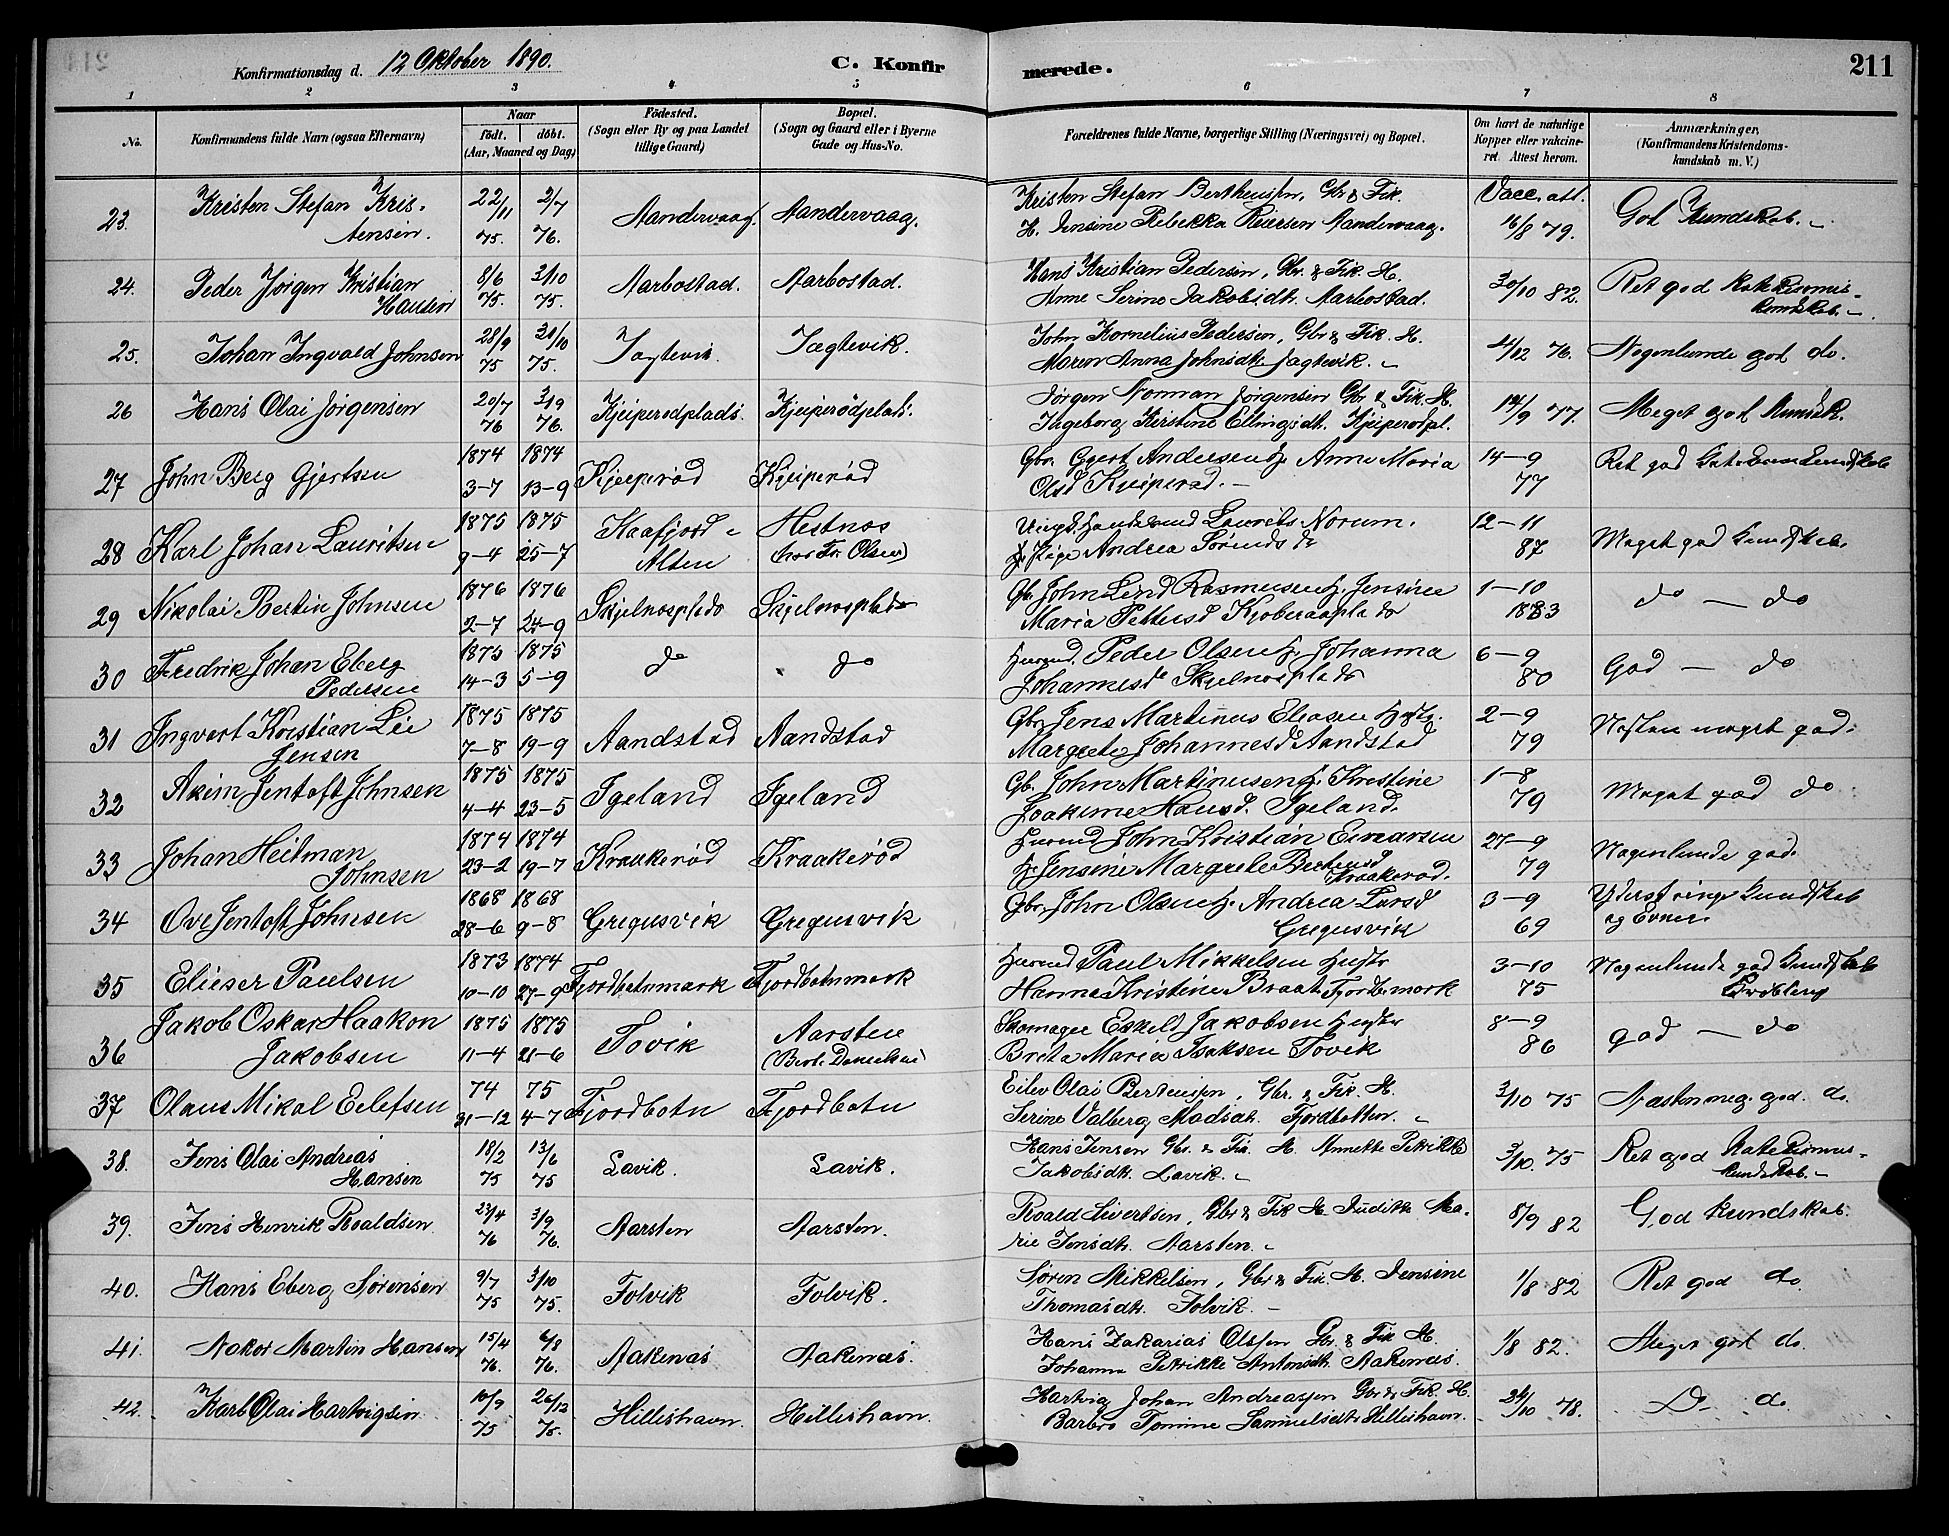 Konfirmationsdag d. 12 Oktober 1890.
C. Konfirmerede.
211
1 2 3 4 5 6 7 8
No.
Konfirmandens fulde Navn (ogsaa Efternavn)
Naar
født. døbt.
(Aar, Maaned og Dag)
Fødested.
(Sogn eller By og paa Landet
tillige Gaard)
Bopæl.
(Sogn og Gaard eller i Byerne
Gade og Hus-No.
Forældrenes fulde Navne, borgerlige Stilling (Næringsvei) og Bopæl.
Om havt de naturlige
Kopper eller vakcine-
ret. Attest herom.
Anmærkninger,
(Konfirmandens Kristendoms-
kundskab m. V.)
23. Kristen Stefan Kris- 22/11 2/7 Aandervaag. Aandervaag. Kristen Stefan Bertheusen, Gbr. & Fik. Vacc. att.
tensen. 75. 76. H. Jensine Rebekka Petersen Aandervaag. 16/8 79. God Kundskab. -
24. Peder Jörgen Kristian 8/6 3/10 Aarbostad. Aarbostad. Hans Kristian Pedersen, Gbr. & Fik. H. 30/10 82. Ret god Katekismus-
Hansen 75. 75. Anne Serine Jakobsdt. Aarbostad. kundskab. -
25. Johan Ingvald Johnsen 28/9 31/10 Jagtevik. Jagtevik. John Kornelius Pedersen, Gbr. & Fik. H. 4/12 76. Nogenlunde god do.
75 75. Maren Anna Johnsdt. Jagtevik. -
26 Hans Olai Jörgensen 20/7 3/9 Kjeiperødplads. Kjeiperødplads. Jörgen Norman Jörgensen Gbr. & Fik. H. 14/9 77. Meget god Kundsk.
76 76. Ingeborg Kirstine Ellingsdt. Kjeiperødpl.
27 John Berg Gjertsen 1874 1874 Kjeiperød Kjeiperød Gbr. Gjert Andersen H. Anne Maria 14-9 Ret god Kate kundskab
3-7 13-9 Olsd Kjeiperød. - 77
28 Karl Johan Lauritsen 1875 1875 Kaafjord - Hestnes Laurits Norum. 12-11 Meget god kundskab.
9-4 25-7 Alten (hos Fr. Olsen) Pige Andrea Sørensd do 87
29 Nikolai Bertin Johnsen 1876 1876 Skjelnesplads Skjelnesplads Gb. John Lind Rasmussen H. Jensine 1-10 do - do
2-7 24-9 Maria Pettersd 1883
30 Fredrik Johan Eberg 1875 1875 do do Husmd. Peder Olsen H. Johanna 6-9 God - do
Pedersen 14-3 5-9 Johannesd Skjelnesplads 80
31 Ingvart Kristian Lei 1875 1875 Aandstad Aandstad Gbr. Jens Martinus Eliasen Hustr. 2-9 Næsten meget god.
Jensen 7-8 19-9 Margrete Johannesd Aandstad 79
32 Akim Jentoft Johnsen 1875 1875 Igeland Igeland Gb. John Martinusen H. Kristine 1-8 Meget god do
4-4 23-5 Joakime Hansd. Igeland. 79
33 Johan Heitman 1874 1874 Kraakerød Kraakerød Husmd John Kristian Einarsen 27-9 Nogenlunde god.
Johnsen 23-2 19-7 H. Jensine Margrete Bertensd Kraakerød. 79
34 Ove Jentoft Johnsen 1868 1868 Gregusvik Gregusvik Gbr. John Olsen H. Andrea Larsd 3-9 Yderst ringe kundskab
28-6 9-8 Gregusvik 69 og Evner.
35 Elieser Paulsen 1873 1874 Fjordbotnmark Fjordbotnmark Husmd Paul Mikkelsen Hustr 3-10 Nogenlunde god kundskab
10-10 27-9 Hanna Kristine Braat Fjordb.mark 75
36 Jakob Oskar Haakon 1875 1875 Tovik Aarsten Skomager Eskild Jakobsen Hustr 8-9 god - do
Jakobsen 11-4 21-6 (Bert. Danielsen) Breta Maria Isaksen Tovik 86
37 Olaus Mikal Eilefsen 74 75 Fjordbotn Fjordbotn Eilev Olai Berteusen, Gbr. & Fik. H. 3/10 75 Næsten meg. god. do.
31-12 4-7 Serine Valberg Madsdt. Fjordbotten. -
38. Jens Olai Andreas 18/2 13/6 Lavik. Lavik. Hans Jensen Gbr. & Fik. H. Annette Petrikke 3/10. 75 Ret god Katekismus-
Hansen 75 75 Jakobsdt. Lavik. - kundskab. -
39. Jens Henrik Roaldsen 23/4 3/9 Aarsten Aarsten. Roald Sivertsen, Gbr & Fik H. Judith Ma- 8/9 82 God kundskab.
76 76. rie Jensdt. Aarsten. -
40. Hans Eberg Sørensen 9/7 3/10 Folvik Folvik. Søren Mikkelsen, Gbr & Fik. H. Jensine 1/8 82 Ret god do.
75 75. Thomasdt. Folvik. -
41. Nakor Martin Hansen 15/4 6/8 Aakenæs Aakenæs. Hans Zakarias Olsen Gbr. & Fik H. 1/8 82. Meget god do.
76. 76. Johanna Petrikke Antonsdt. Aakenæs.
42. Karl Olai Hartvigsen 10/9 26/12 Hilleshavn. Hilleshavn. Hartvig Johan Andreassen Gbr. & Fik. H. 24/10 78. Do do.
75 75. Barbro Tomine Samuelsdt. Hilleshavn.